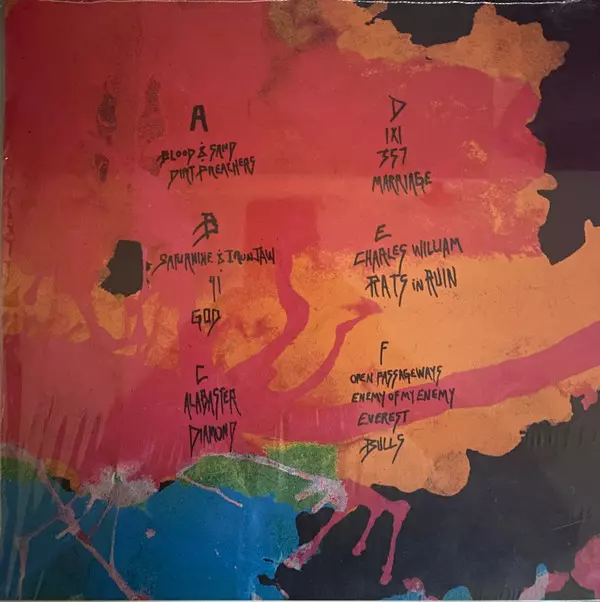 A
BLOOD & SAND
DIRT PREACHERS
B
SATURNINE & IRON JAW
41
GOD
C
ALABASTER
DIAMOND
D
IXI
357
MARRIAGE
E
CHARLES WILLIAM
RATS IN RUIN
F
OPEN PASSAGEWAYS
ENEMY OF MY ENEMY
EVEREST
BULLS